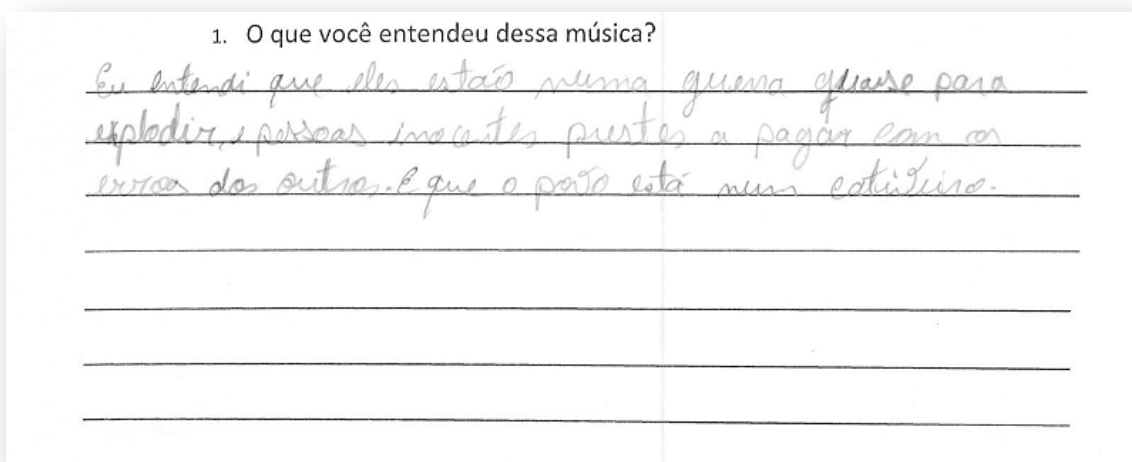 1. O que você entendeu dessa música?
Eu entendi que eles estaõ numa guerra quase para
explodir, e pessoas inocentes prestes a pagar com os
erros dos outros. E que o povo está num cativeiro.